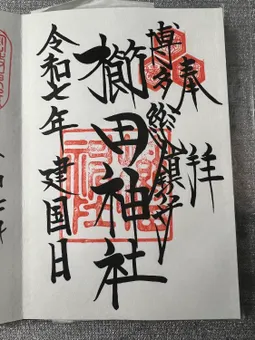 奉拝
博多総鎮守
櫛田神社
令和七年 建国日